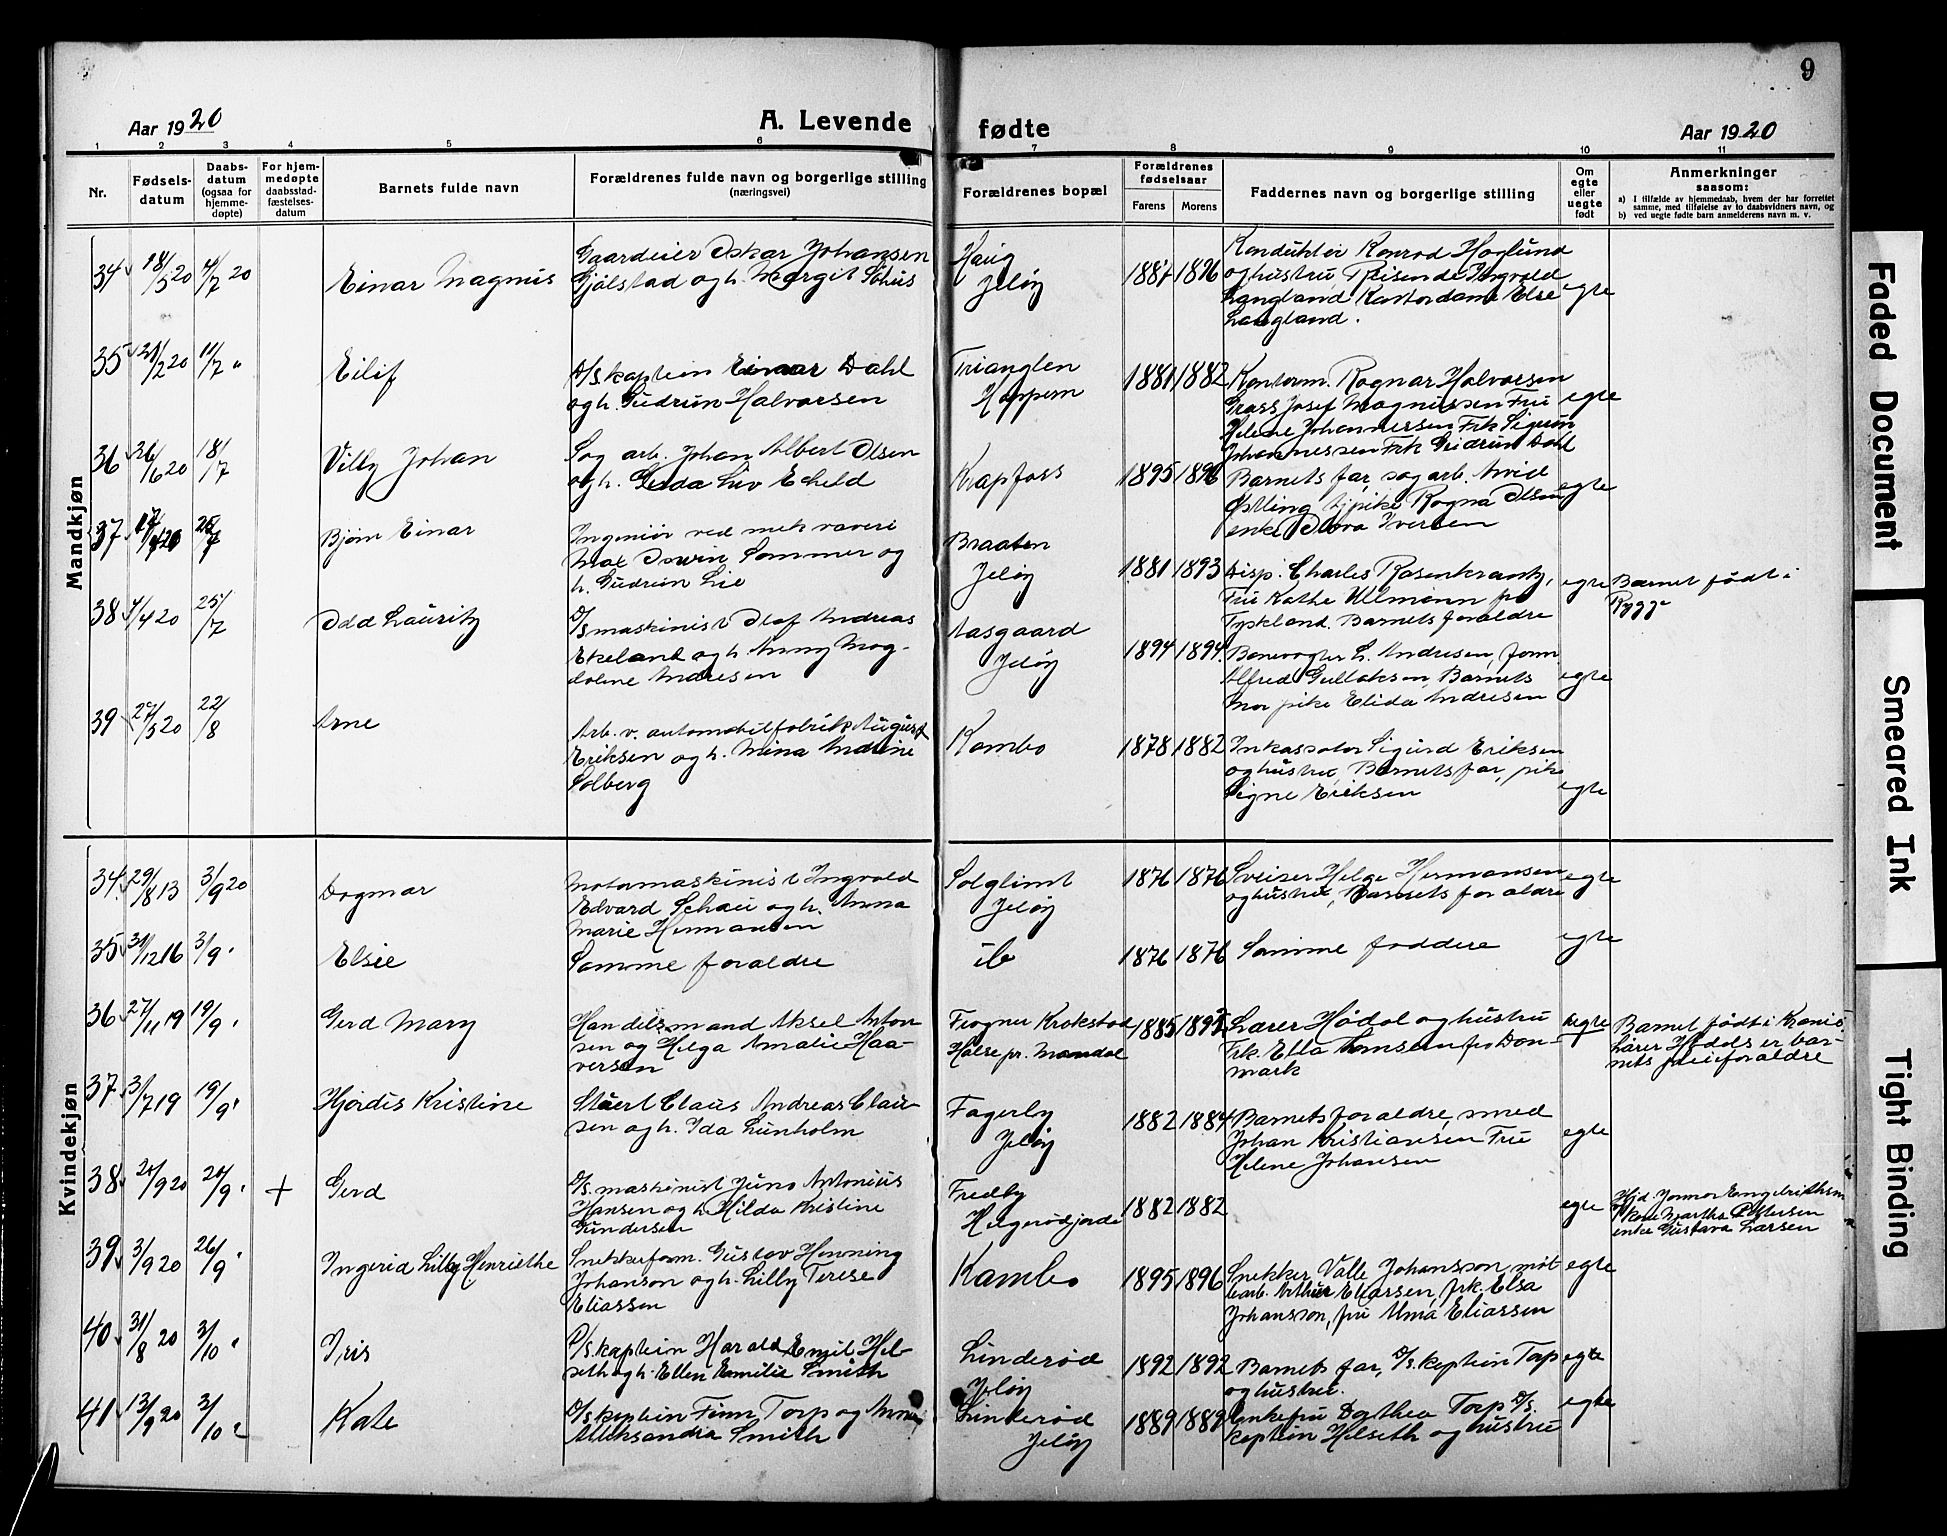 9
Aar 1920
A. Levende fødte
Aar 1920
1 2 3 4 5 6 7 8 9 10 11
Nr.
Fødsels-
datum
Daabs-
datum
(ogsaa for
hjemme-
døpte)
For hjem-
medøpte
daabsstad-
fæstelses-
datum
Barnets fulde navn
Forældrenes fulde navn og borgerlige stilling
(næringsvei)
Forældrenes bopæl
Forældrenes
fødselsaar
Farens Morens
Faddernes navn og borgerlige stilling
Om
egte
eller
uegte
født
Anmerkninger
saasom:
a) I tilfælde av hjemmedaab, hvem der har forrettet
samme, med tilføielse av to daabsvidners navn, og
b) ved uegte fødte barn anmelderens navn m. v.
Mandkjøn
34 18/5 20 4/7 20
Einar Magnus
Gaardeier Oskar Johansen
Gjølstad og h. Margit
Haug
Jeløy
1887 1896
Konduktør Konrad Høglund
og hustru, Reisende Ingvald
Langland Kontordame Else
Langland.
egte
35 21/2 20 11/7 "
Eilif
D/S kaptein Einar Dahl
og h. Gudrun Halvorsen
Trianglen
Hoppern
1881 1882
Kontorm. Ragnar Halvorsen
Grass Josef Magnussen Fru
Helene Johannessen Frk Sigrun
Johannessen Frk Gudrun Dahl
egte
36 26/6 20 18/7
Villy Johan
Sag arb. Johan Albert Olsen
og h. Gerda Liv Ekeld
Krapfoss
1895 1896
Barnets far, sag arb. Arvid
Østling tj pike Ragna Olsen
enke Olava Iversen
egte
37 25/7
Bjørn Einar
Ingeniør ved mek væveri
Max Erwin Sommer og
h. Gudrun Lie
Braaten
Jeløy
1881 1893
Disp. Charles Rosenkrantz,
Fru Kathe Ullmann fra
Tyskland. Barnets forældre
egte
Barnet født i
Rygge
38 4/4 20 25/7
Odd Lauritz
D/S maskinist Olaf Andreas
Ekeland og h. Anny Mag-
dalene Andresen
Aasgaard
Jeløy
1894 1894
Banevogter L. Andresen, form
Alfred Gulliksen, Barnets
mor pike Elida Andresen
egte
39 27/5 20 22/8
Arne
Arb. v. automobilfabrik August
Eriksen og h. Mina Andrine
Solberg
Kambo
1878 1882
Inkassator Sigurd Eriksen
og hustru, Barnets far, pike
Signe Eriksen
egte
Kvindekjøn
34 29/8 13 3/9 20
Dagmar
Motormaskinist Ingvald
Edvard Schau og h. Anna
Marie Hermansen
Solglimt
Jeløy
1876 1876
Sveiser Helge Hermansen
og hustru, Barnets forældre
egte
35 31/12 16 3/9 "
Elsie
Samme forældre
ib
1876 1876
Samme faddere
egte
36 27/11 19 19/9 "
Gerd Mary
Handelsmand Aksel Anton
sen og Helga Amalie Haa-
versen
Frogner Krokstad
Halse pr. Mandal
1885 1895
Lærer Hødal og hustru
Frk. Ella Hansen fra Dan-
mark
uegte
Barnet født i Krania
Lærer Hødals er bar-
nets pleieforældre
37 3/7 19 19/9 "
Hjørdis Kristine
Stuert Claus Andreas Clau-
sen og h. Ida Lunholm
Fagerby
Jeløy
1882 1884
Barnets forældre, smed
Johan Kristiansen Fru
Helene Johansen
egte
38 20/9 20 20/9 " +
Gerd
D/S. maskinist Juno Antonius
Hansen og h. Hilda Kristine
Gundersen
Fredby
Helgerødjorde
1882 1882
egte
Hjd. Jormor Engebrithsen
Marthe Pettersen
enke Gustava Larsen
39 3/9 20 26/9 "
Ingerid Lilly Henriethe
Snekkerform. Gustav Henning
Johanson og h. Lilly Terese
Eliassen
Kambo
1895 1896
Snekker Valle Johansson møl
learb. Arthur Eliassen, frk. Elsa
Johansson, fru Alma Eliassen
egte
40 31/8 20 3/10 "
Iris
D/S. kaptein Harald Emil Hel-
seth og h. Ellen Emilie Smith
Linderød
Jeløy
1892 1892
Barnets far, D/S. kaptein Torp
og hustru.
egte
41 13/9 20 3/10 "
Kate
D/S kaptein Finn Torp og Anna
Aleksandra Smith
Linderød
Jeløy
1889 1889
Enkefru Dorthea Torp D/S.
kaptein Helseth og hustru
egte
Faded Document
Smeared Ink
Tight Binding